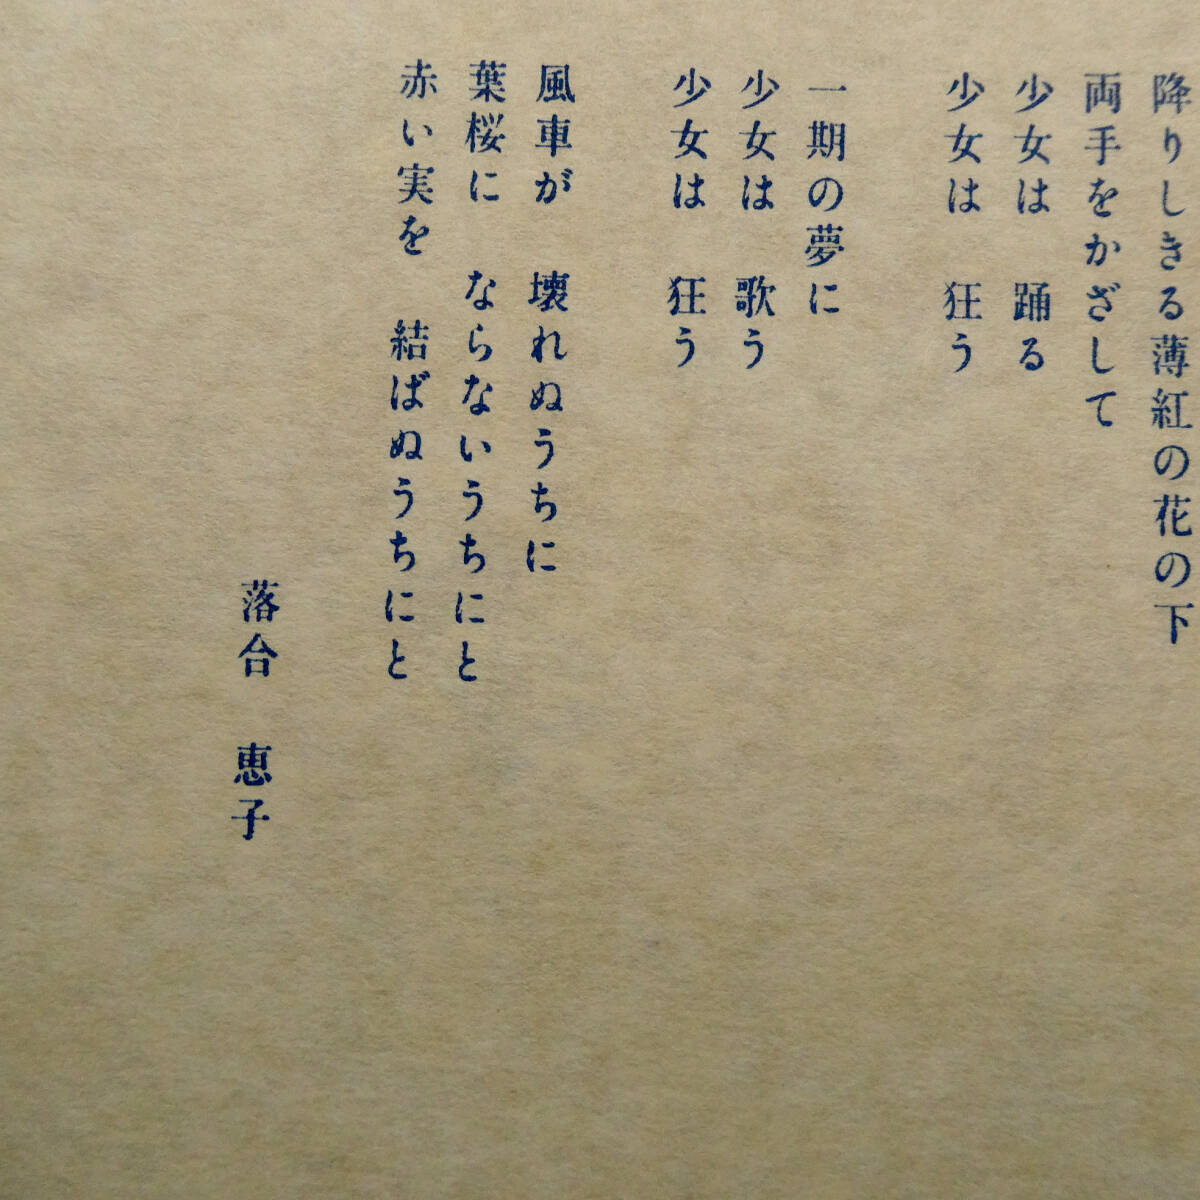 降りしきる薄紅の花の下
両手をかざして
少女は　踊る
少女は　狂う
一期の夢に
少女は　歌う
少女は　狂う
風車が　壊れぬうちに
葉桜に　ならないうちにと
赤い実を　結ばぬうちにと
落合　恵子